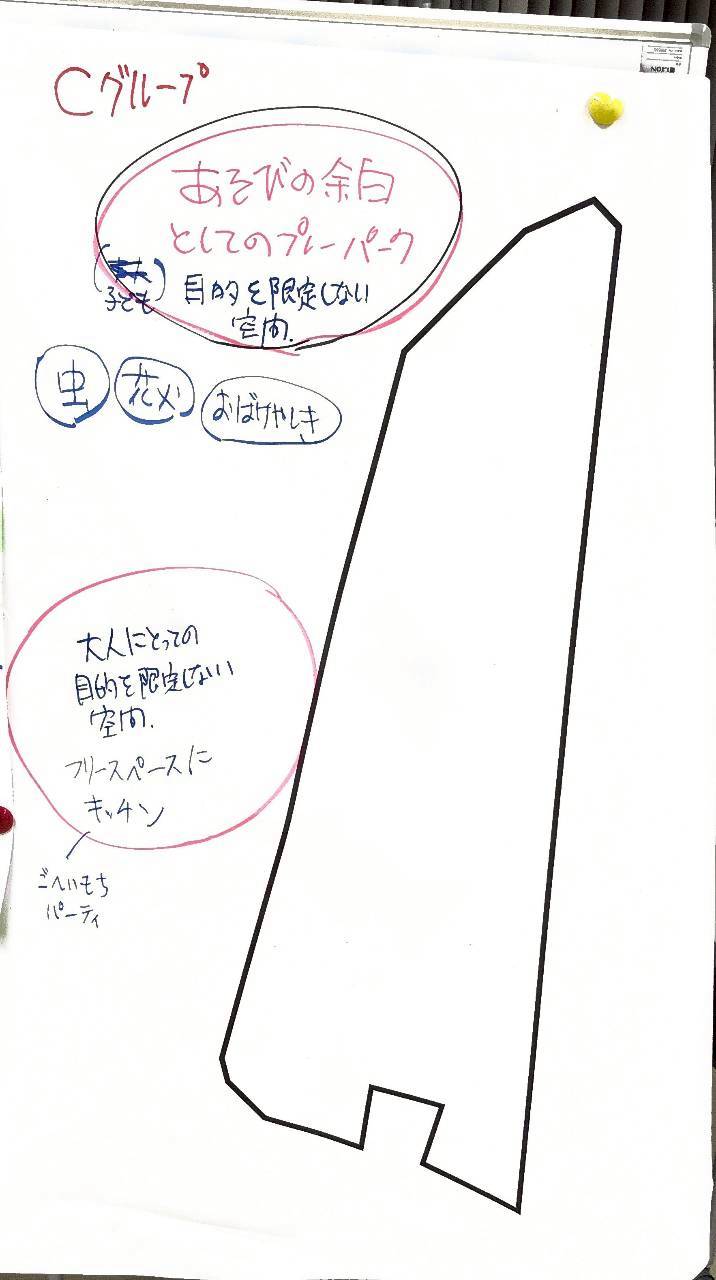 Cグループ
あそびの余白
としてのプレーパーク
(子ども)
目的を限定しない
空間.
虫
花火
おばけやしき
大人にとっての
目的を限定しない
空間.
フリースペースに
キッチン
ごへいもち
パーティ